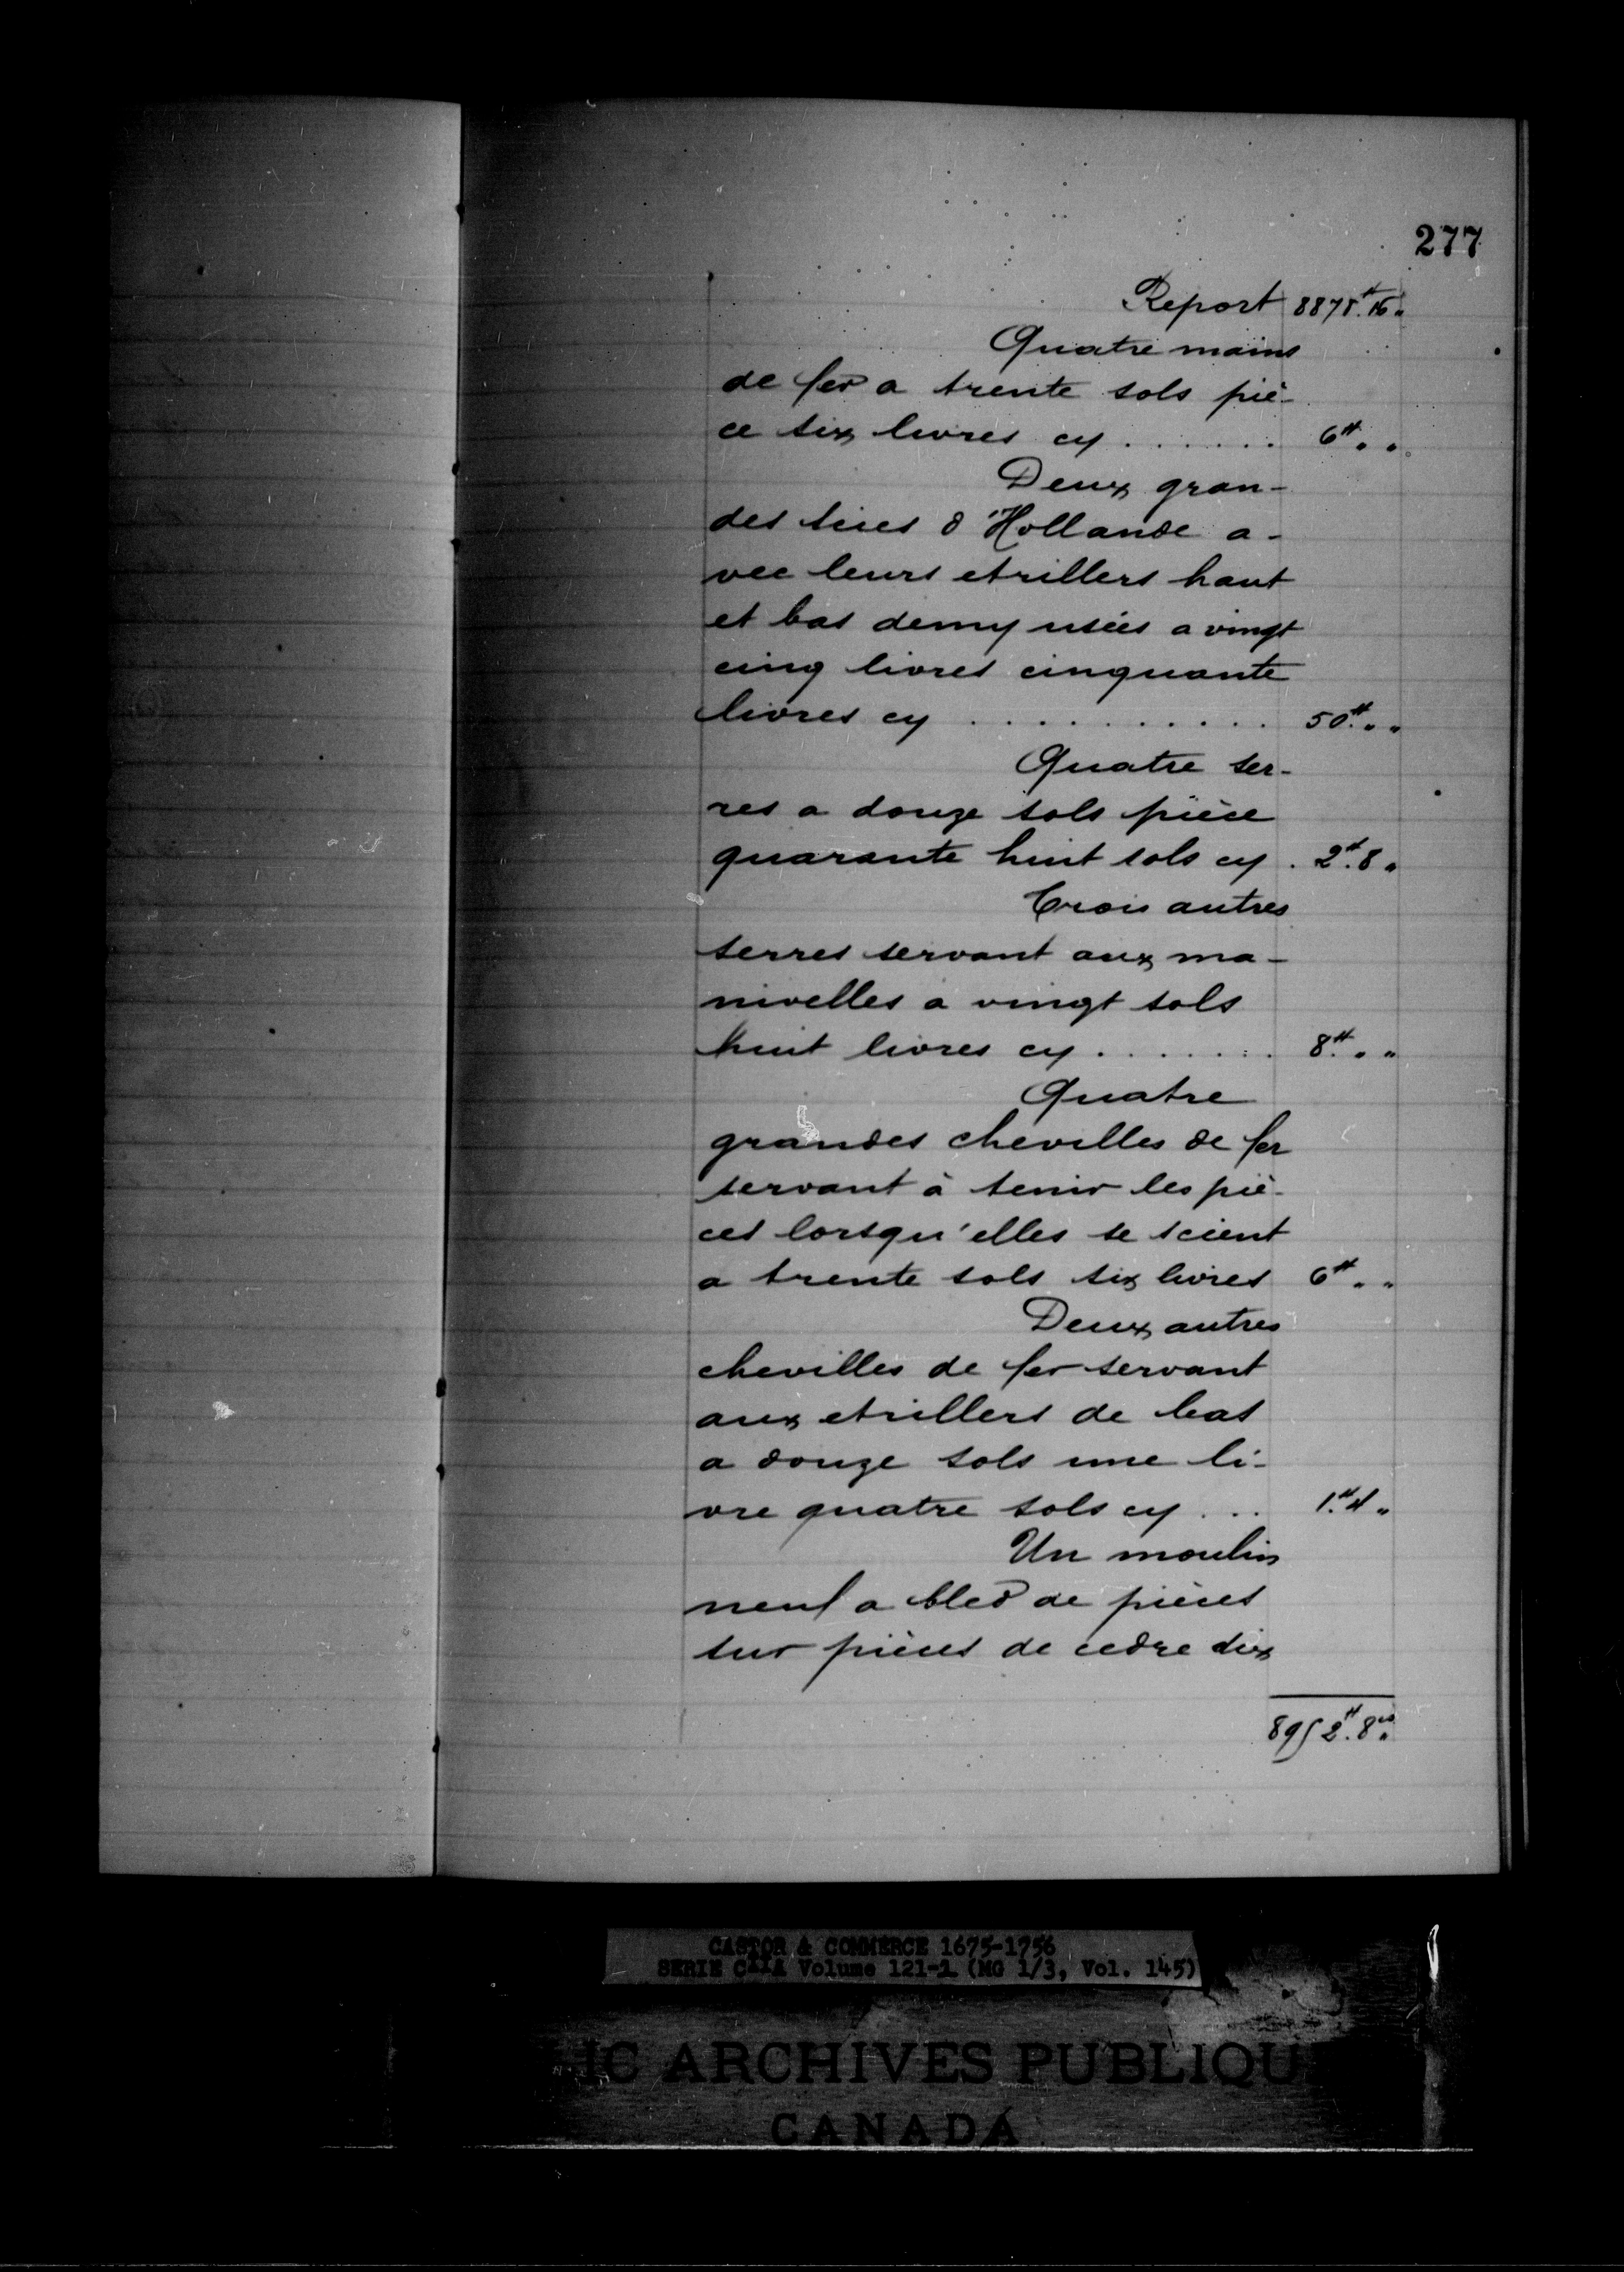 277
Report 8878.# 16 "
Quatre mains
de fer a trente sols piè-
ce six livres cy . . . . . . 6# " "
Deux gran-
des scies d'Hollande a-
vec leurs etrillers haut
et bas demy usées a vingt
cinq livres cinquante
livres cy . . . . . . . . . . 50# " "
Quatre ser-
res a douze sols pièce
quarante huit sols cy . 2#. 8 "
Trois autres
serres servant aux ma-
nivelles a vingt sols
huit livres cy . . . . . . . 8# " "
Quatre
grandes chevilles de fer
servant à tenir les piè-
ces lorsqu'elles se scient
a trente sols six livres 6# " "
Deux autres
chevilles de fer servant
aux etrillers de bas
a douze sols une li-
vre quatre sols cy . . . 1#. 4 "
Un moulin
neuf a bled de pièces
sur pièces de cedre dix
8952#. 8 "
CASTOR & COMMERCE 1675-1756
SERIE C11A Volume 121-1 (MG 1/3, Vol. 145)
IC ARCHIVES PUBLIQU
CANADA